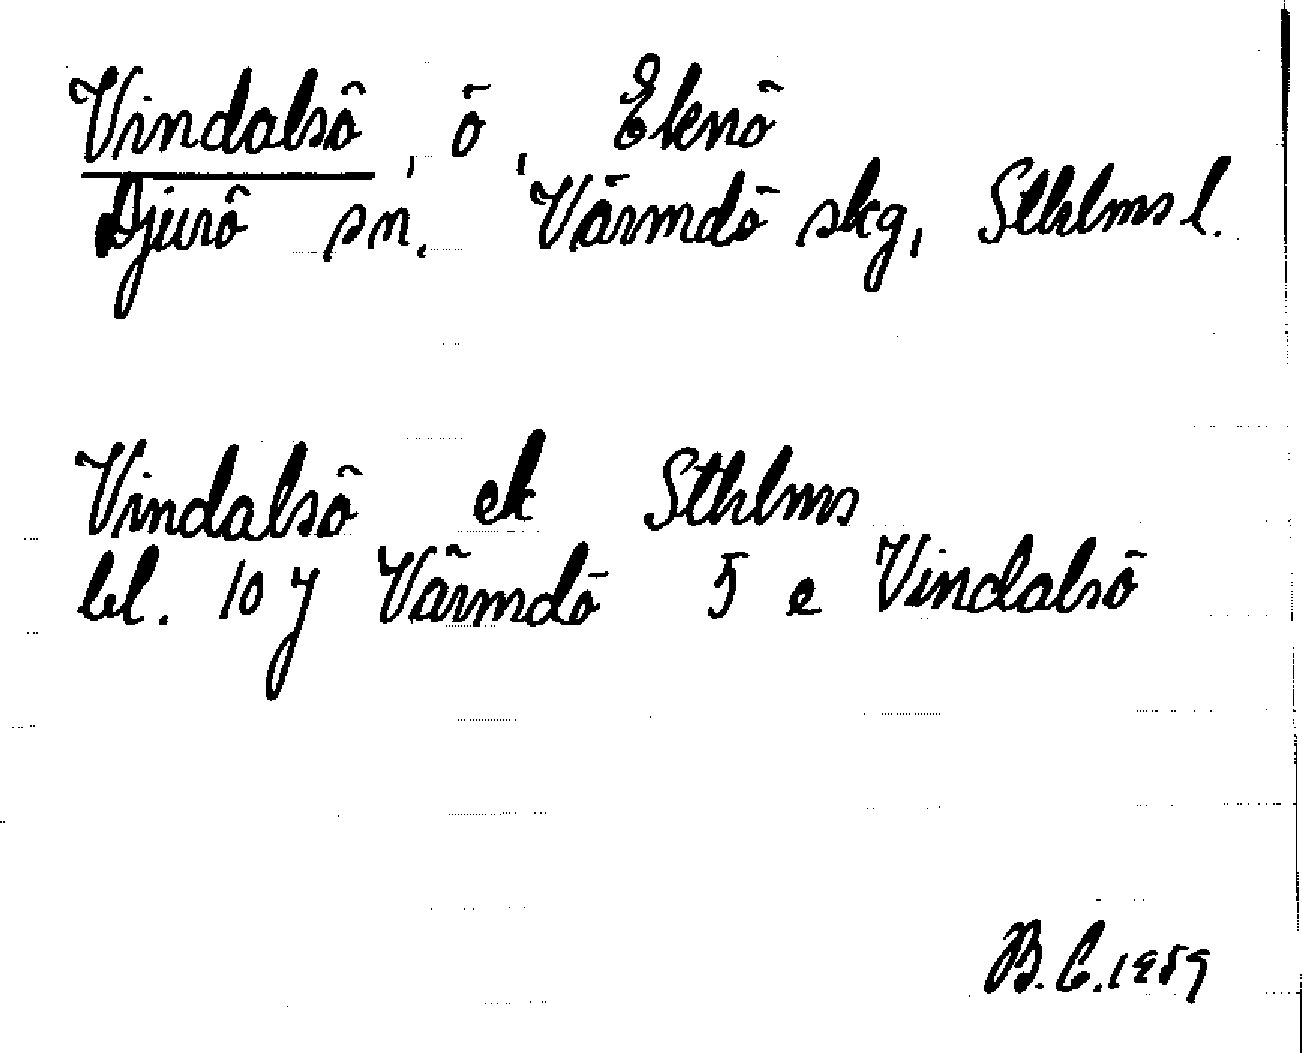 Vindalsö, ö, Eknö
Djurö sn. Värmdö skg, Sthlms l.
Vindalsö ek Sthlms
bl. 107 Värmdö 5 e Vindalsö
B.C. 1959